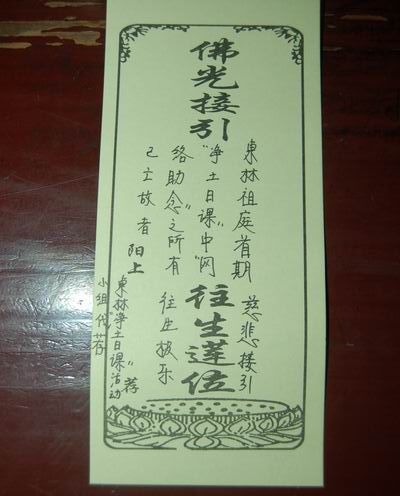 佛光接引
東林祖庭首期
"净土日课"中"网
络助念"之所有
已亡故者
慈悲接引
往生极乐
往生莲位
阳上
東林"净土日课"活动
小组代荐
荐